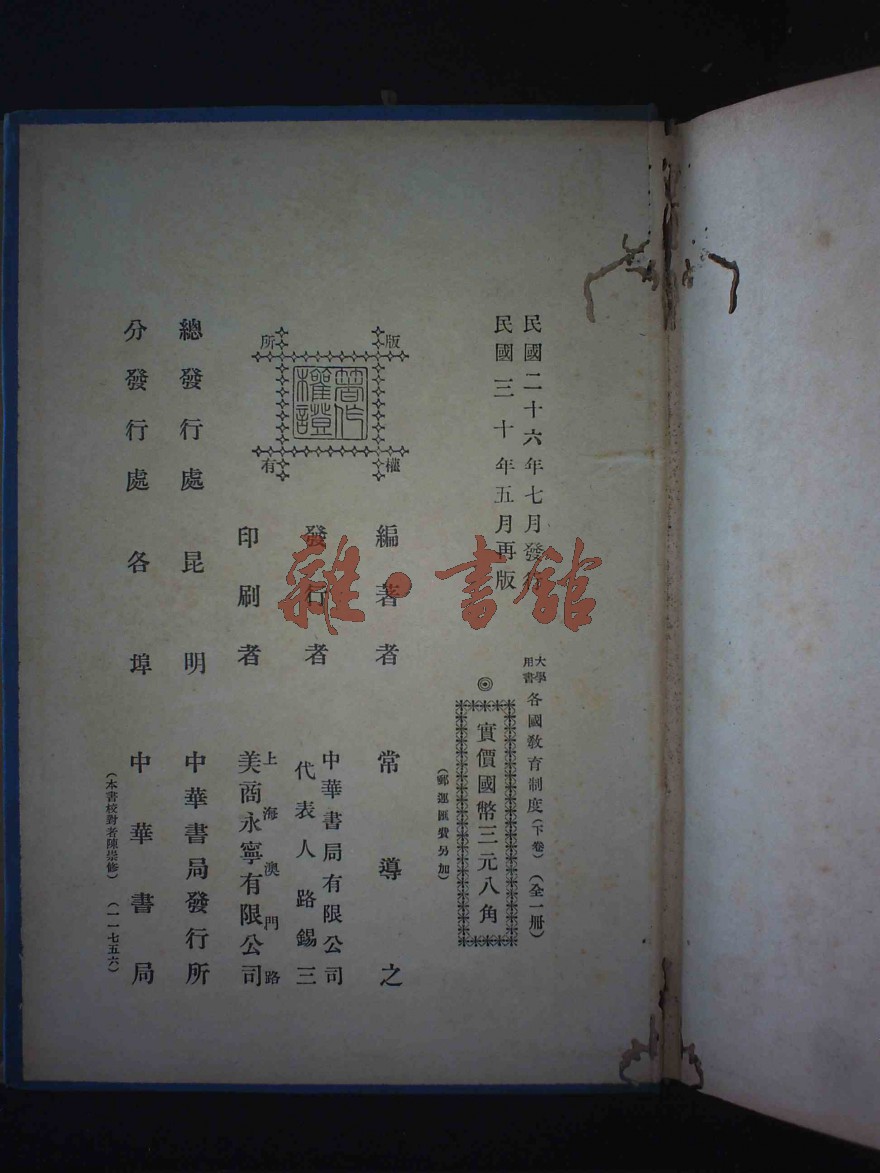 民國二十六年七月發行
民國三十年五月再版
大學用書 各國教育制度(下卷)(全一册)
◎
實價國幣三元八角
(郵運匯費另加)
版權所有
著作權證
編著者 常導之
發行者 中華書局有限公司
代表人路錫三
印刷者 上海澳門路
美商永寧有限公司
總發行處 昆明 中華書局發行所
分發行處 各埠 中華書局
(本書校對者陳崇修)(一一七五六)
雜·書館